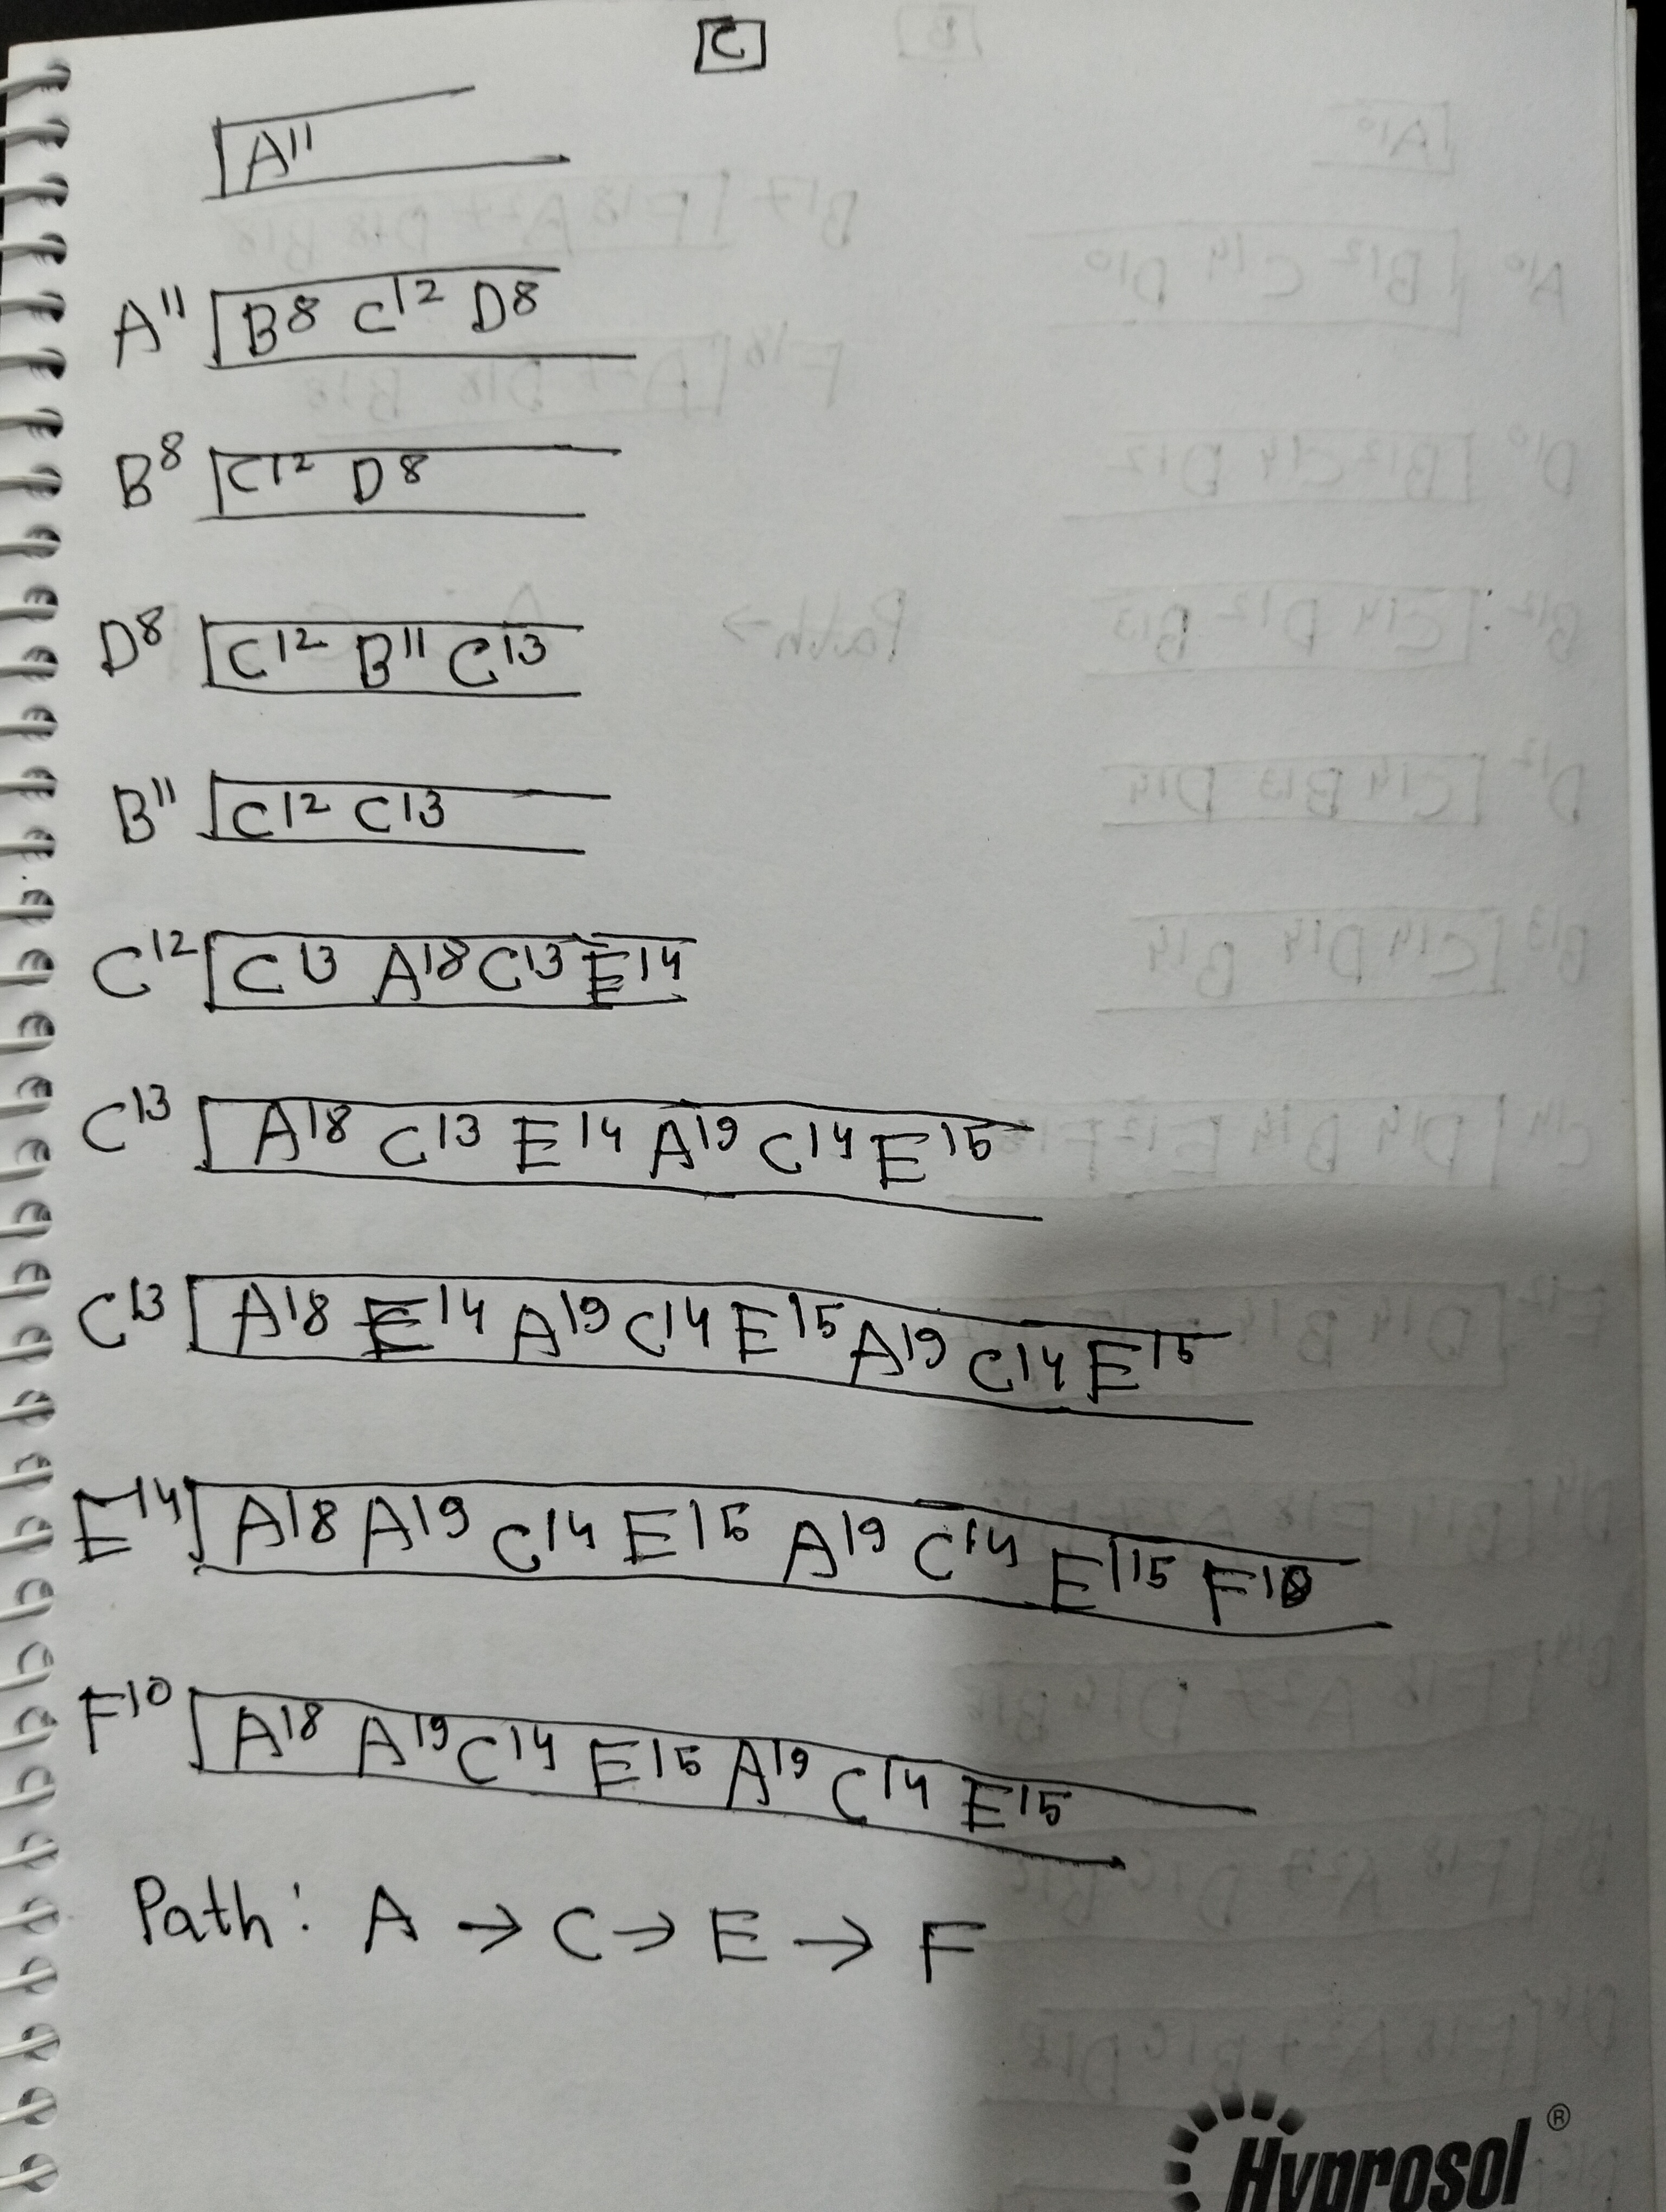 C
A11
A11 B8 C12 D8
B8 C12 D8
D8 C12 B11 C13
B11 C12 C13
C12 C13 A18 C13 E14
C13 A18 C13 E14 A19 C14 E15
C13 A18 E14 A19 C14 E15 A19 C14 E15
E14 A18 A19 C14 E15 A19 C14 E15 F10
F10 A18 A19 C14 E15 A19 C14 E15
Path: A → C → E → F
Hyprosol ®